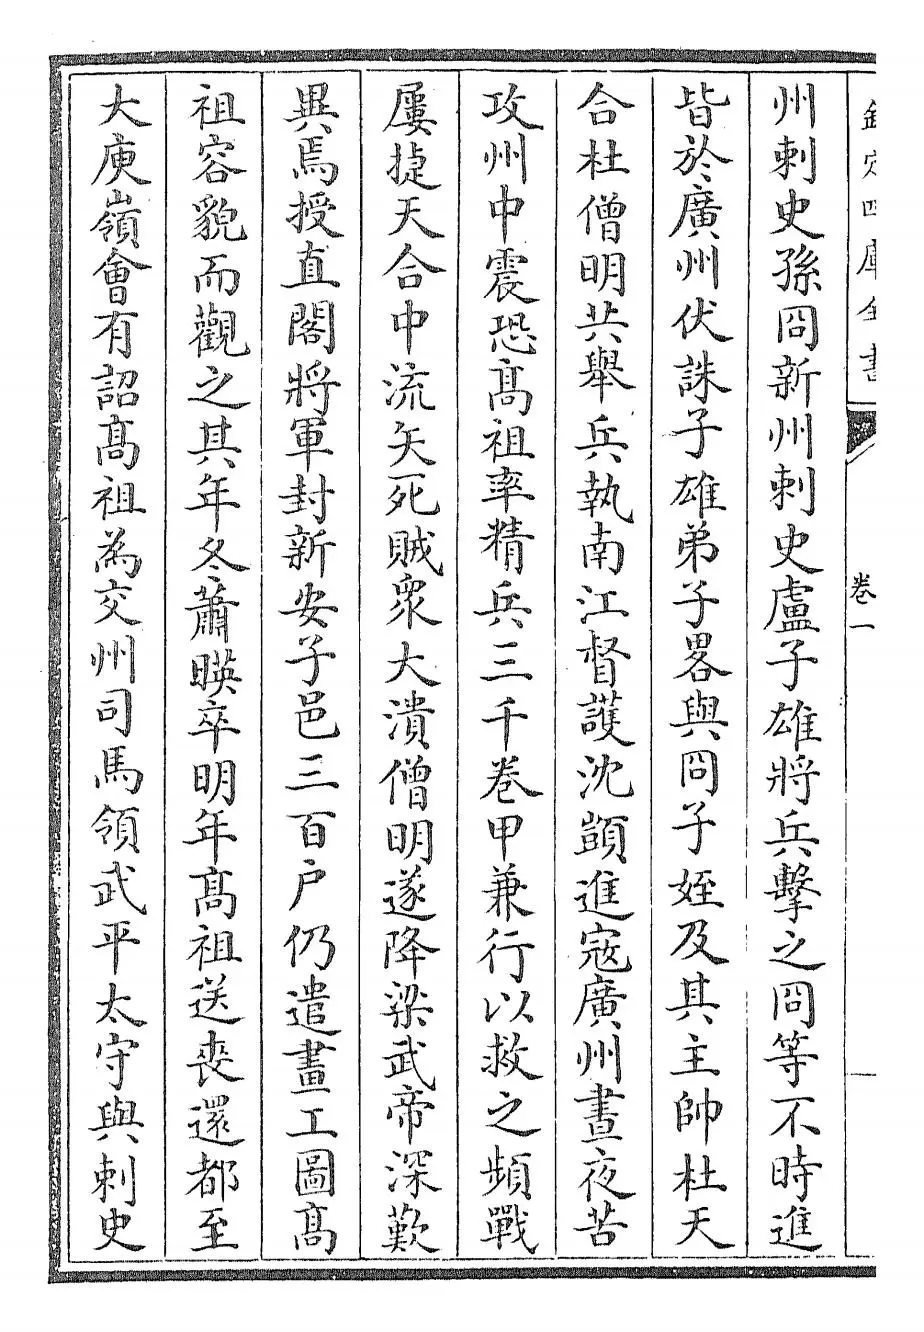 欽定四庫全書
卷一
州刺史孫冏新州刺史盧子雄將兵擊之冏等不時進
皆於廣州伏誅子雄弟子畧與冏子姪及其主帥杜天
合杜僧明共舉兵執南江督護沈顗進寇廣州晝夜苦
攻州中震恐髙祖率精兵三千卷甲兼行以救之頻戰
屢捷天合中流矢死賊衆大潰僧明遂降梁武帝深歎
異焉授直閣將軍封新安子邑三百户仍遣畫工圖髙
祖容貌而觀之其年冬蕭暎卒明年髙祖送喪還都至
大庾嶺會有詔髙祖為交州司馬領武平太守與刺史